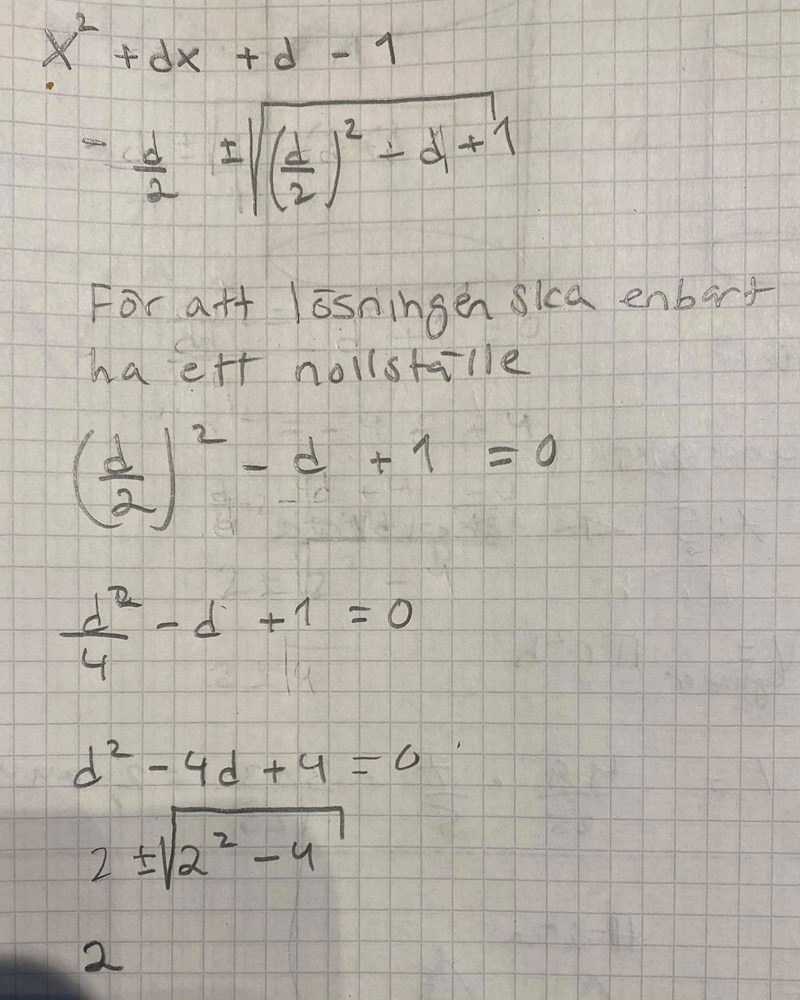 x² + dx + d - 1
- d/2 ± √((d/2)² - d + 1)
För att lösningen ska enbart
ha ett nollställe
(d/2)² - d + 1 = 0
d²/4 - d + 1 = 0
d² - 4d + 4 = 0
2 ± √(2² - 4)
2